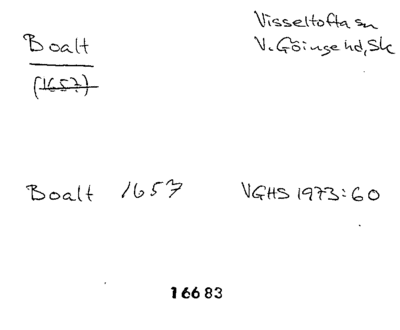 Boalt
(1657)
Visseltofta sn
V. Göinge hd, Sk
Boalt 1657 VGHS 1973:60
16683